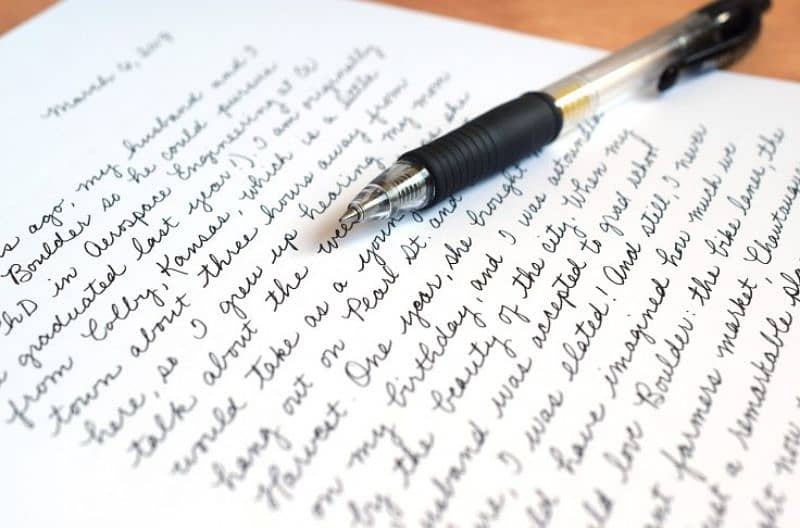 March 6,
s ago, my husband and I
Boulder so he could pursue
PhD in Aerospace Engineering at CU
graduated last year!). I am originally
from Colby, Kansas, which is a little
town about three hours away from
here, so I grew up hearing my mom
talk about the wee she
would take as a young
hang out on Pearl St. and
Harvest. One year, she brought
on my birthday, and I was astounded
by the beauty of the city. When my
usband was accepted to grad school
ure, I was elated! And still, I never
ld have imagined how much we
ld love Boulder: the bike lanes, the
nt farmers market, Chautauqua
st a remarkable pla
ght now